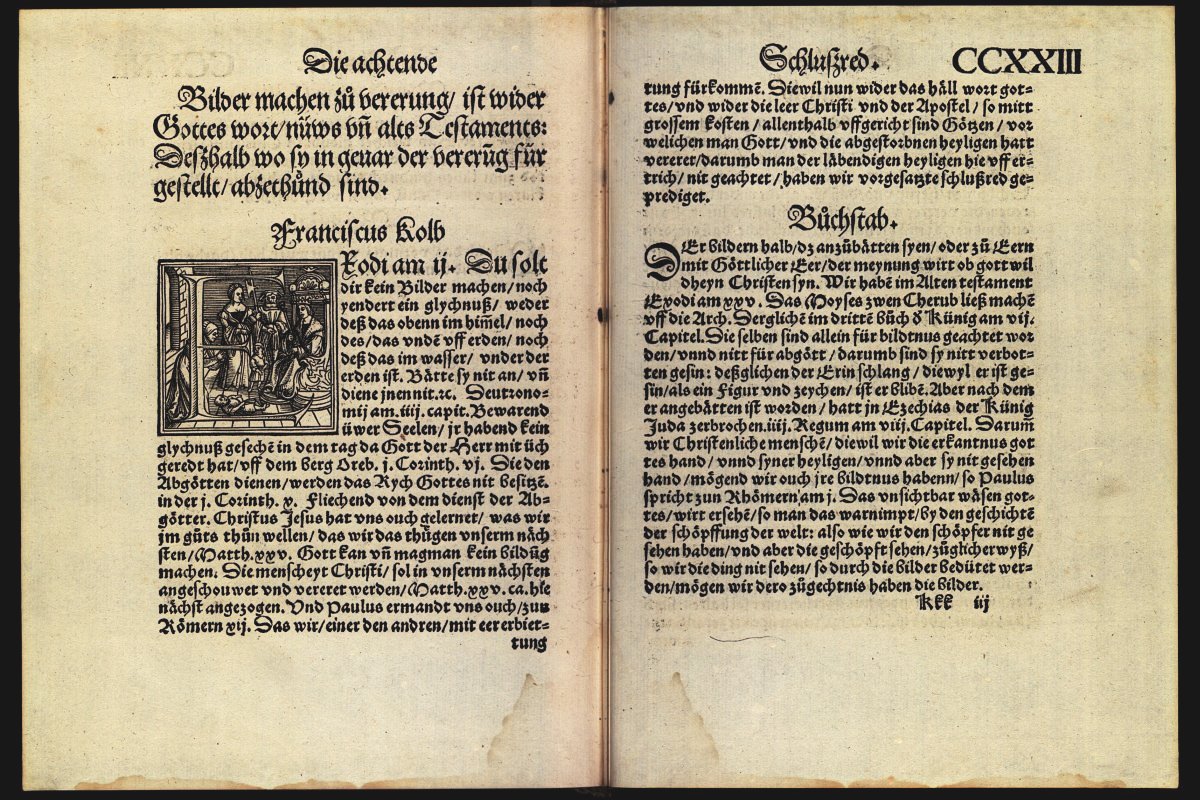 Die achtende
Bilder machen zů vererung/ ist wider
Gottes wort/nüws vñ alts Testaments:
Deßhalb wo sy in gevar der vererũg für
gestellt/ abzethůnd sind.
Franciscus Kolb
EXodi am ij. Du solt
dir kein Bilder machen/noch
yendert ein glychnuß/ weder
deß das obenn im him̃el/noch
des/das vndẽ vff erden/noch
deß das im wasser/ vnder der
erden ist. Bätte sy nit an/ vñ
diene jnen nit.ꝛc. Deutrono-
mij am.iiij.capit.Bewarend
üwer Seelen/ jr habend kein
glychnuß gesechẽ in dem tag da Gott der Herr mit üch
geredt hat/vff dem berg Oreb. j. Corinth. vj. Die den
Abgötten dienen/werden das Rych Gottes nit besitzẽ.
in der j. Corinth. x. Fliechend von dem dienst der Ab-
götter. Christus Jesus hat vns ouch gelernet/ was wir
jm gůts thůn wellen/das wir das thügen vnserm näch
sten/Matth.xxv. Gott kan vñ mag man kein bildũg
machen. Die menscheyt Christi/ sol in vnserm nächsten
angeschouwet vnd vereret werden/Matth.xxv.ca.hie
nächst angezogen. Vnd Paulus ermandt vns ouch/zun
Römern xij. Das wir/einer den andren/mit eererbiet-
tung
Schlußred. CCXXIII
tung fürkommẽ. Diewil nun wider das häll wort got-
tes/vnd wider die leer Christi vnd der Apostel/ so mitt
grossem kosten/ allenthalb vffgericht sind Götzen/ vor
welichen man Gott/vnd die abgestorbnen heyligen hatt
vereret/darumb man der läbendigen heyligen hie vff er-
trich/ nit geachtet/haben wir vorgesatzte schlußred ge-
prediget.
Bůchstab.
DEr bildern halb/dz anzůbätten syen/ oder zů Eern
mit Göttlicher Eer/der meynung wirt ob gott wil
dheyn Christen syn. Wir habẽ im Alten testament
Exodi am xxv. Das Moyses zwen Cherub ließ machẽ
vff die Arch. Derglichẽ im drittẽ bůch ð Künig am vij.
Capitel.Die selben sind allein für bildtnus geachtet wor
den/vnnd nitt für abgött/ darumb sind sy nitt verbot-
ten gesin: deßglichen der Erin schlang/ diewyl er ist ge-
sin/als ein Figur vnd zeychen/ ist er blibẽ. Aber nach dem
er angebätten ist worden/ hatt jn Ezechias der Künig
Juda zerbrochen.iiij.Regum am viij.Capitel. Darum̃
wir Christenliche menschẽ/diewil wir die erkantnus got
tes hand/ vnnd syner heyligen/vnnd aber sy nit gesehen
hand/mögend wir ouch jre bildtnus habenn/so Paulus
spricht zun Rhömern am j. Das vnsichtbar wäsen got-
tes/wirt ersehẽ/so man das warnimpt/by den geschichtẽ
der schöpffung der welt: also wie wir den schöpfer nit ge
sehen haben/vnd aber die geschöpft sehen/zůglicher wyß/
so wir die ding nit sehen/ so durch die bilder bedütet wer-
den/mögen wir dero zůgechtnis haben die bilder.
Kkk iij